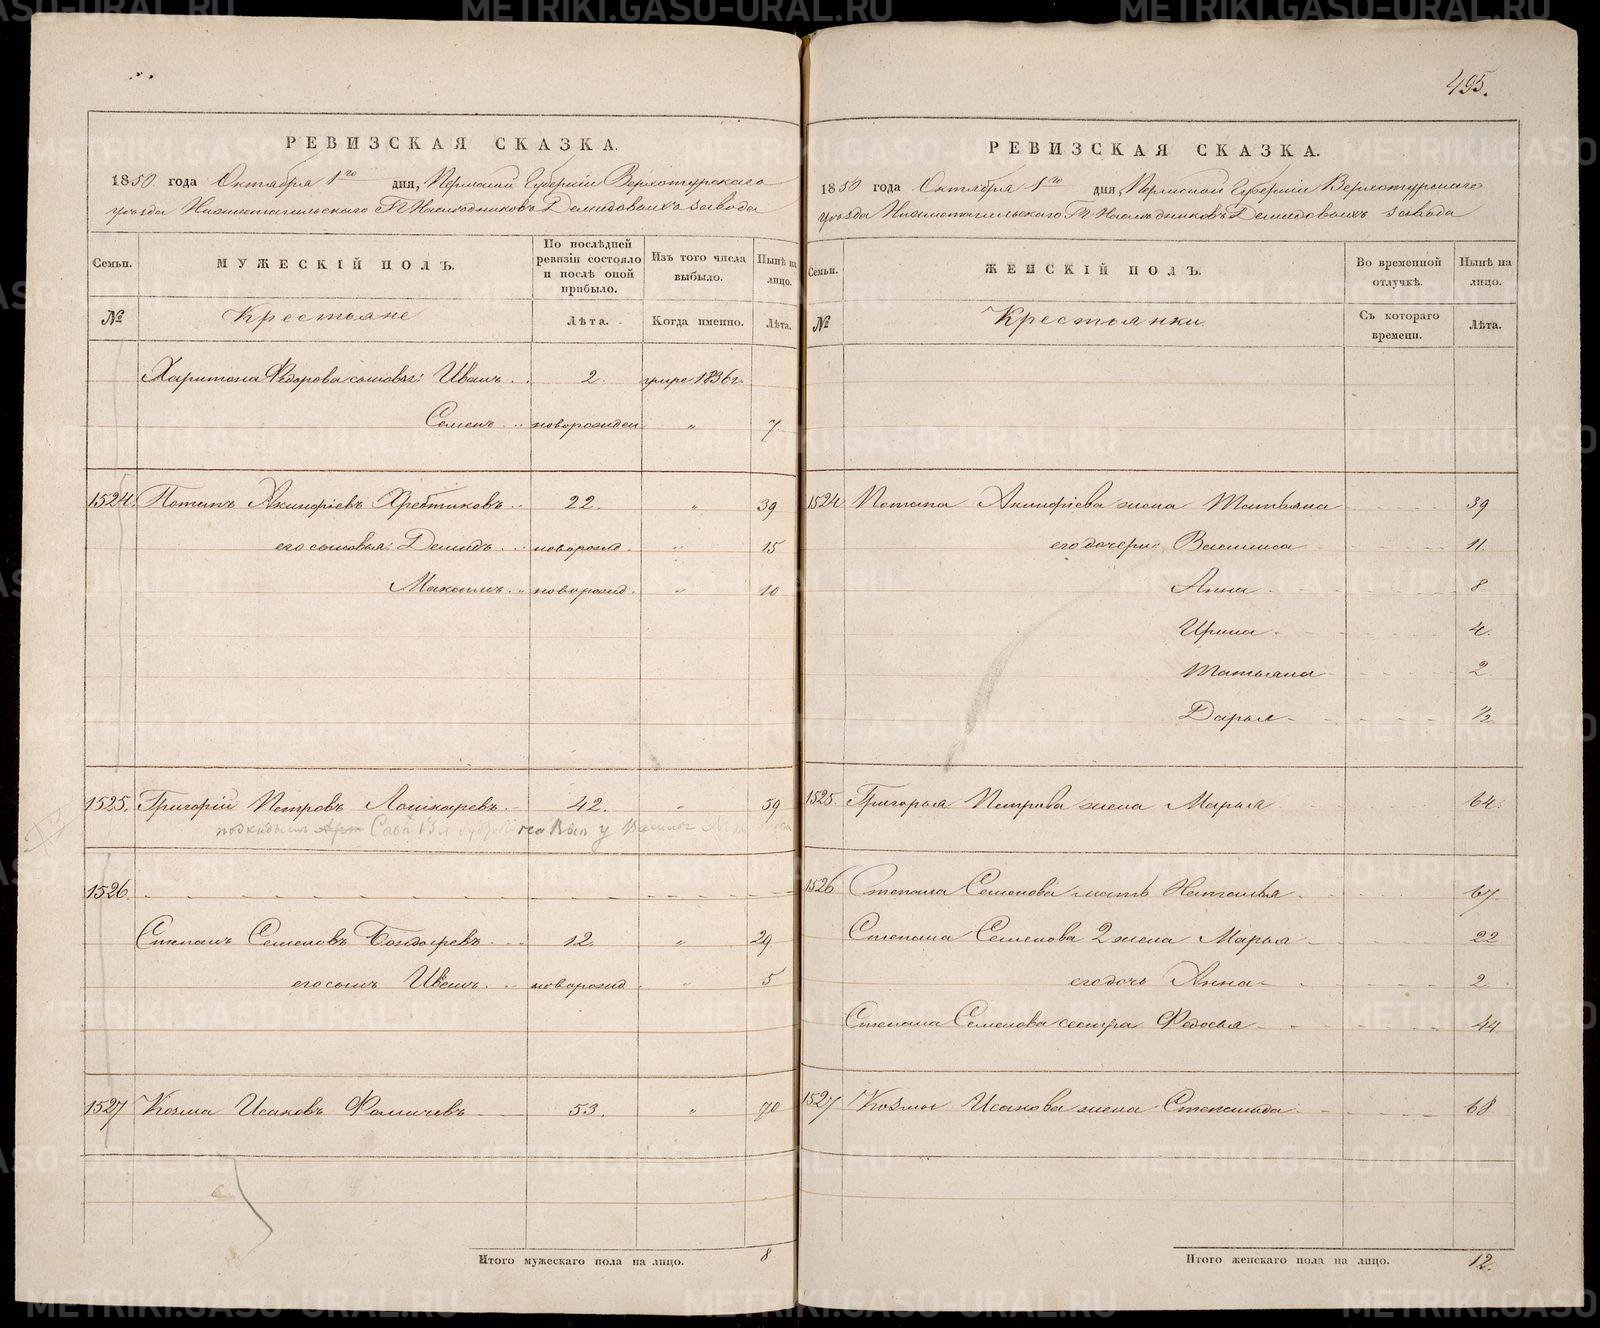 495.
РЕВИЗСКАЯ СКАЗКА.
1850 года Октября 1го дня, Пермской Губерніи Верхотурскаго
уѣзда Нижнетагильскаго Гг. Наслѣдниковъ Демидовыхъ завода
Семьи. МУЖЕСКІЙ ПОЛЪ. По послѣдней ревизіи состояло и послѣ оной прибыло. Изъ того числа выбыло. Нынѣ на лицо.
№ Крестьяне Лѣта. Когда именно. Лѣта.
Харитона Федорова сыновья: Иванъ 2. умре 1836 г.
Семенъ новорожден „ 7
1524. Потапъ Акинфіевъ Хребтиковъ 22. „ 39
его сыновья: Демидъ новорожд. „ 15
Максимъ новорожд. „ 10
1525. Григорій Петровъ Лошкаревъ 42. „ 59
Сава 13 л
1526
Степанъ Семеновъ Бондаревъ 12. „ 29
его сынъ Иванъ новорожд „ 5
1527 Козма Исаковъ Фомичевъ 53. „ 70
Итого мужескаго пола на лицо. 8
РЕВИЗСКАЯ СКАЗКА.
1850 года Октября 1го дня, Пермской Губерніи Верхотурскаго
уѣзда Нижнетагильскаго Гг. Наслѣдниковъ Демидовыхъ завода
Семьи. ЖЕНСКІЙ ПОЛЪ. Во временной отлучкѣ. Нынѣ на лицо.
№ Крестьянки Съ котораго времени. Лѣта.
1524 Потапа Акинфіева жена Татьяна 39
его дочери: Василиса 11.
Анна 8
Ирина 4.
Татьяна 2
Дарья 1/2
1525. Григорья Петрова жена Марья 64.
1526 Степана Семенова мать Наталья 67.
Степана Семенова 2 жена Марья 22
его дочь Анна 2
Степана Семенова сестра Федосья 44
1527 Козмы Исакова жена Степанида 68
Итого женскаго пола на лицо. 12.
METRIKI.GASO-URAL.RU